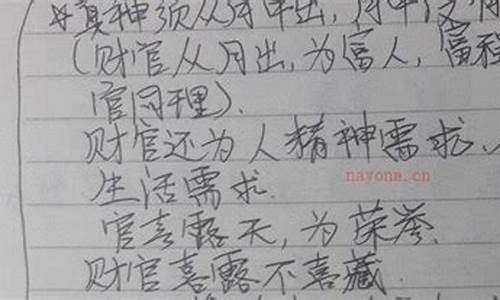 *真神须从月中出，月中没有
(财官从月出，为富人，富程
官同理).
财官还为人精神需求、
生活需求.
nayona.cn
官喜露天，为荣誉.
财官喜露不喜藏.